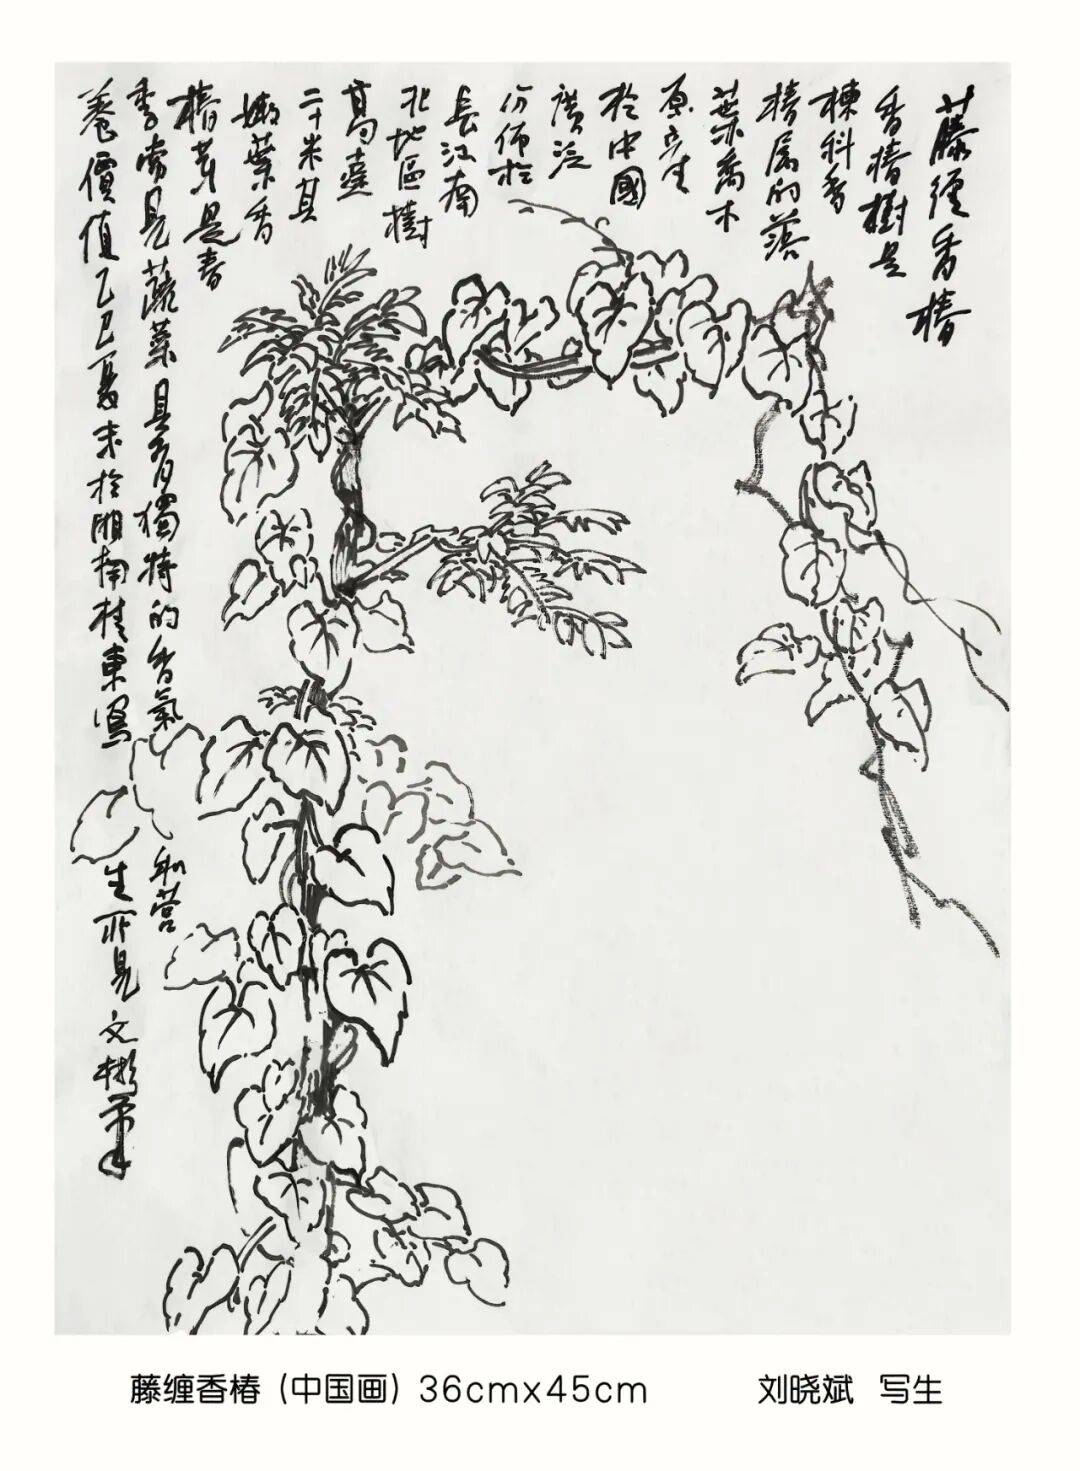 藤缠香椿
香椿樹是
楝科香
椿属的落
葉喬木
原产生
於中國
廣泛
分佈於
長江南
北地區樹
高達
二十米其
嫩葉香
椿芽是春
季常見蔬菜具有獨特的香氣和营
養價值乙巳夏末於湘南桂東寫生所見文彬筆
藤缠香椿（中国画）36cmx45cm 刘晓斌 写生